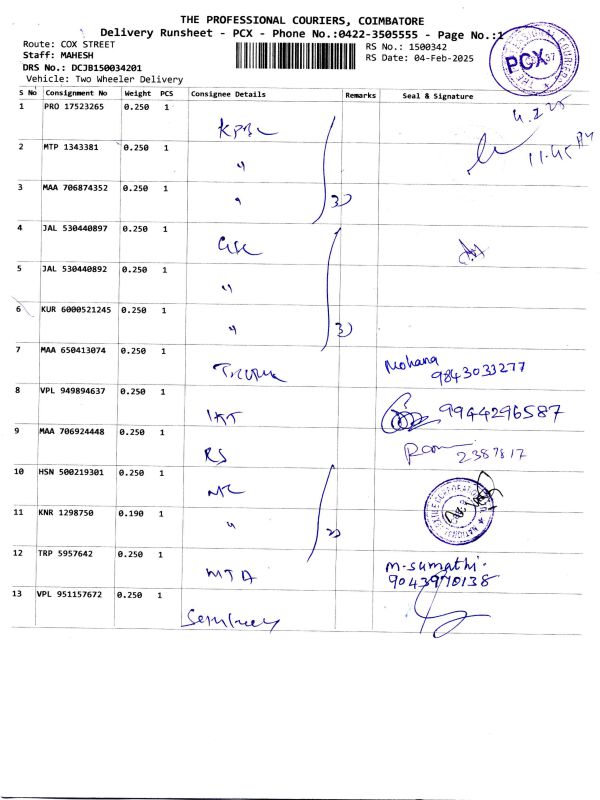 THE PROFESSIONAL COURIERS, COIMBATORE
Delivery Runsheet - PCX - Phone No.:0422-3505555 - Page No.:1
Route: COX STREET
RS No.: 1500342
Staff: MAHESH
RS Date: 04-Feb-2025
DRS No.: DCJB150034201
Vehicle: Two Wheeler Delivery
PCX
S No Consignment No Weight PCS Consignee Details Remarks Seal & Signature
1 PRO 17523265 0.250 1
4.2.25
11.45 AM
2 MTP 1343381 0.250 1 "
3 MAA 706874352 0.250 1 " 3)
4 JAL 530440897 0.250 1
5 JAL 530440892 0.250 1 "
6 KUR 6000521245 0.250 1 " 3)
7 MAA 650413074 0.250 1 Mohana
9843033277
8 VPL 949894637 0.250 1 9944296587
9 MAA 706924448 0.250 1 RS
2387817
10 HSN 500219301 0.250 1
11 KNR 1298750 0.190 1 " 2)
12 TRP 5957642 0.250 1 MTA M.Sumathi.
9043970138
13 VPL 951157672 0.250 1